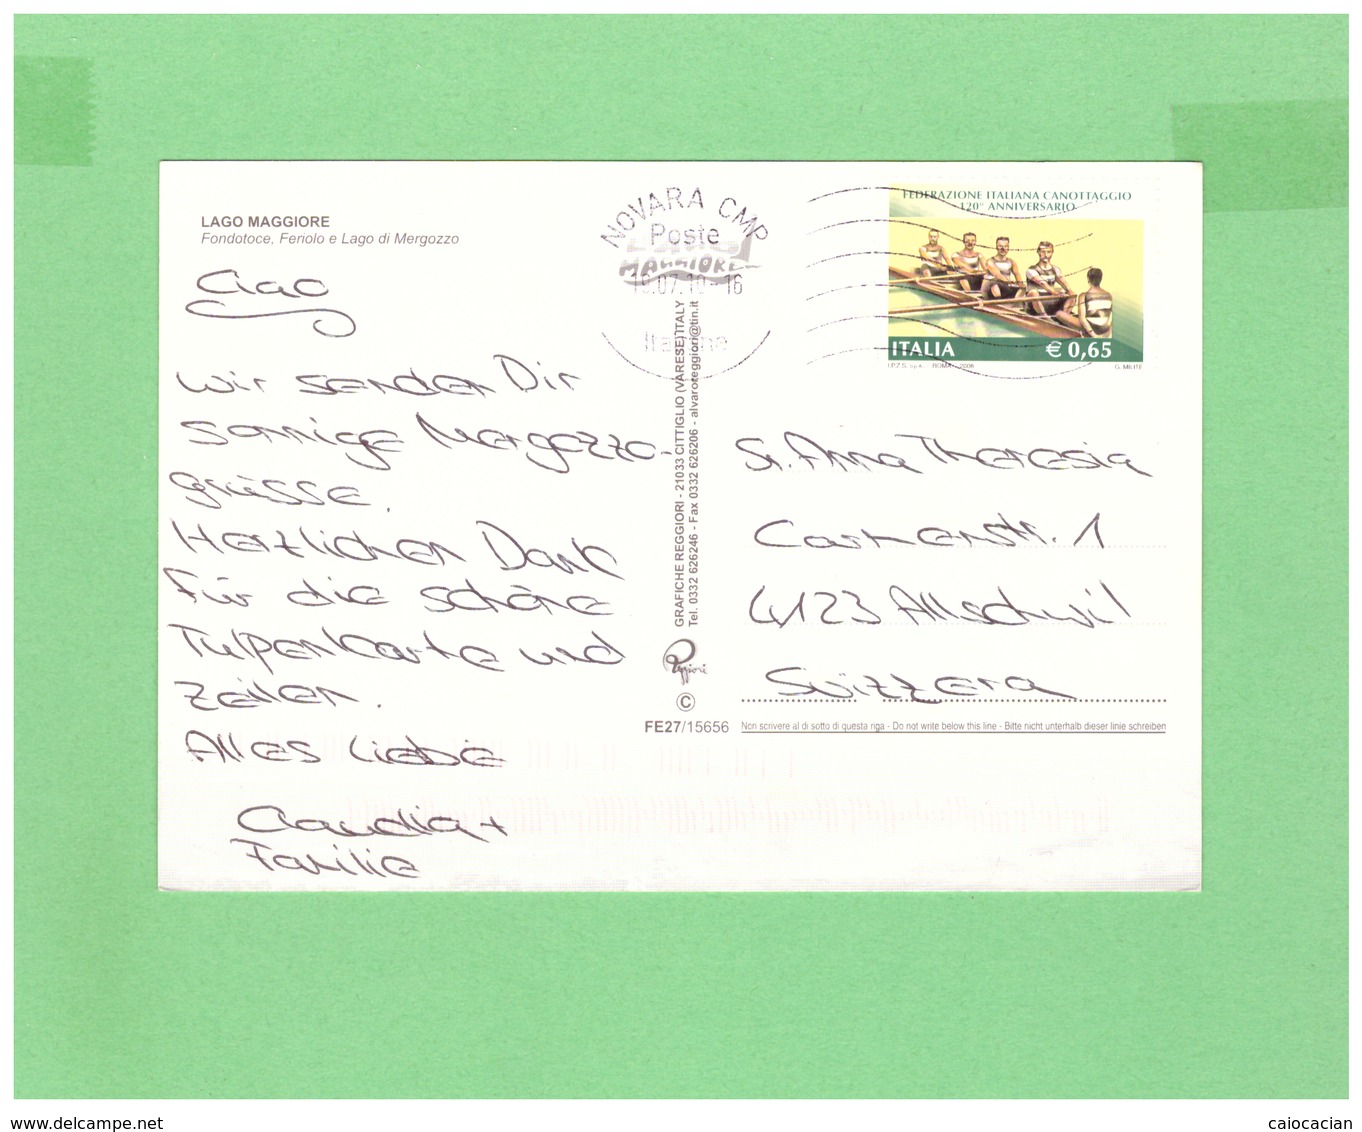 LAGO MAGGIORE
Fondotoce, Feriolo e Lago di Mergozzo
Ciao
Wir senden Dir
sonnige Mergozzo-
grüsse.
Herzlichen Dank
für die schöne
Tulpenkarte und
Zeilen.
Alles Liebe
Claudia +
Familie
NOVARA CMP
Poste
MAGGIORE
.07.10-16
Italiane
GRAFICHE REGGIORI - 21033 CITTIGLIO (VARESE) ITALY
Tel. 0332 626246 - Fax 0332 626206 - alvaroreggiori@tin.it
Reggiori
©
FE27/15656
FEDERAZIONE ITALIANA CANOTTAGGIO
120° ANNIVERSARIO
ITALIA € 0,65
I.P.Z.S. S.p.A. - ROMA - 2008 G. MILITE
Sr. Anna Theresia
Carmenstr. 1
4123 Allschwil
Svizzera
Non scrivere al di sotto di questa riga - Do not write below this line - Bitte nicht unterhalb dieser linie schreiben
www.delcampe.net
caiocacian